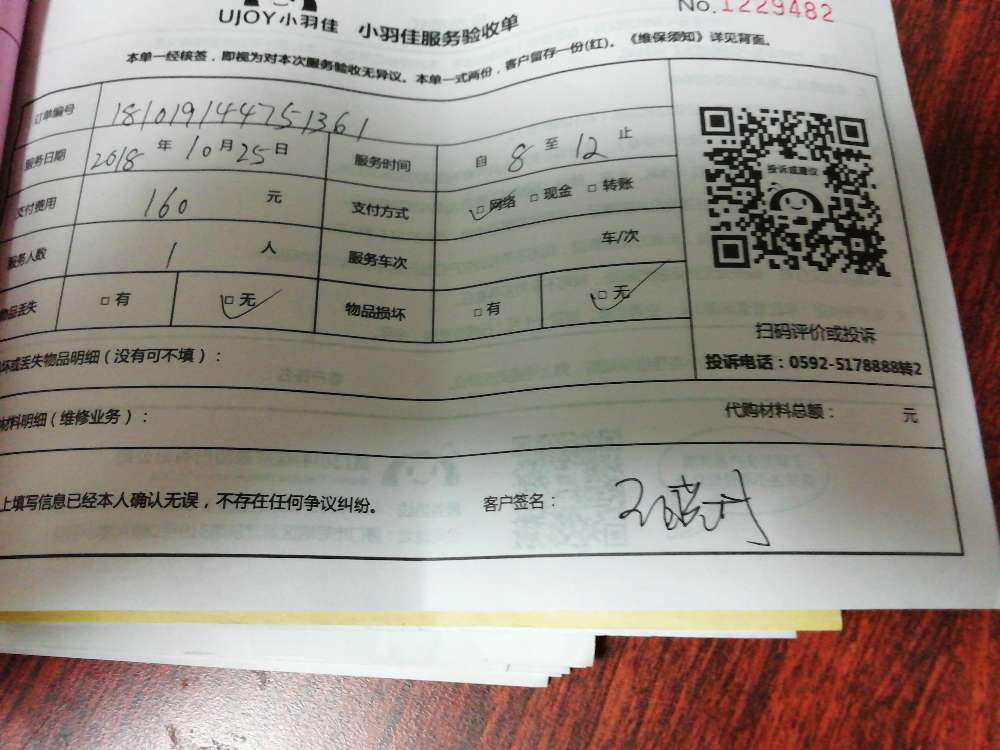 No.1229482
UJOY小羽佳 小羽佳服务验收单
本单一经核签，即视为对本次服务验收无异议。本单一式两份，客户留存一份(红)。《维保须知》详见背面。
订单编号 181019144751361
服务日期 2018 年 10 月 25 日 服务时间 自 8 至 12 止
支付费用 160 元 支付方式 □ 网络 □ 现金 □ 转账
服务人数 1 人 服务车次 车/次
物品丢失 □ 有 □ 无 物品损坏 □ 有 □ 无
投诉或建议
扫码评价或投诉
投诉电话：0592-5178888转2
坏或丢失物品明细（没有可不填）：
材料明细（维修业务）： 代购材料总额： 元
上填写信息已经本人确认无误，不存在任何争议纠纷。 客户签名：